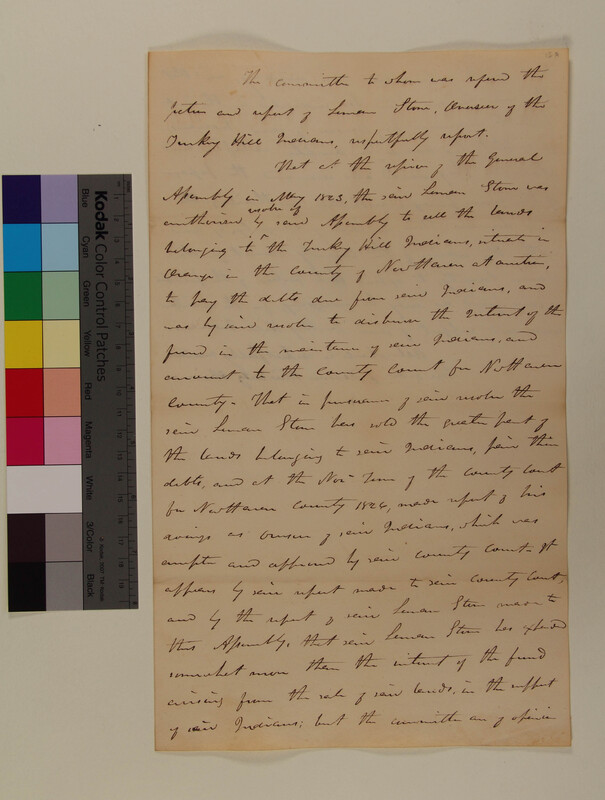 The committee to whom was refered the
petition and report of Leman Stone, Overseer of the
Turkey Hill Indians, respectfully report.
That at the session of the General
Assembly in May 1823, the said Leman Stone was
authorised by resolve of said Assembly to sell the lands
belonging to the Turkey Hill Indians, situate in
Orange in the County of New Haven at auction,
to pay the debts due from said Indians, and
was by said resolve to disburse the Interest of the
fund in the maintance of said Indians, and
account to the County Court for New Haven
County. That in pursuance of said resolve the
said Leman Stone has sold the greater part of
the lands belonging to said Indians, paid their
debts, and at the Nov. Term of the County Court
for New Haven County 1824, made report of his
doings as overseer of said Indians, which was
accepted and approved by said County Court. It
appears by said report made to said County Court,
and by the report of said Leman Stone made to
this Assembly, that said Leman Stone has expended
somewhat more than the interest of the fund
arising from the sale of said lands, in the support
of said Indians; but the committee are of opinion
Kodak Color Control Patches
Blue
Cyan
Green
Yellow
Red
Magenta
White
3/Color
Black